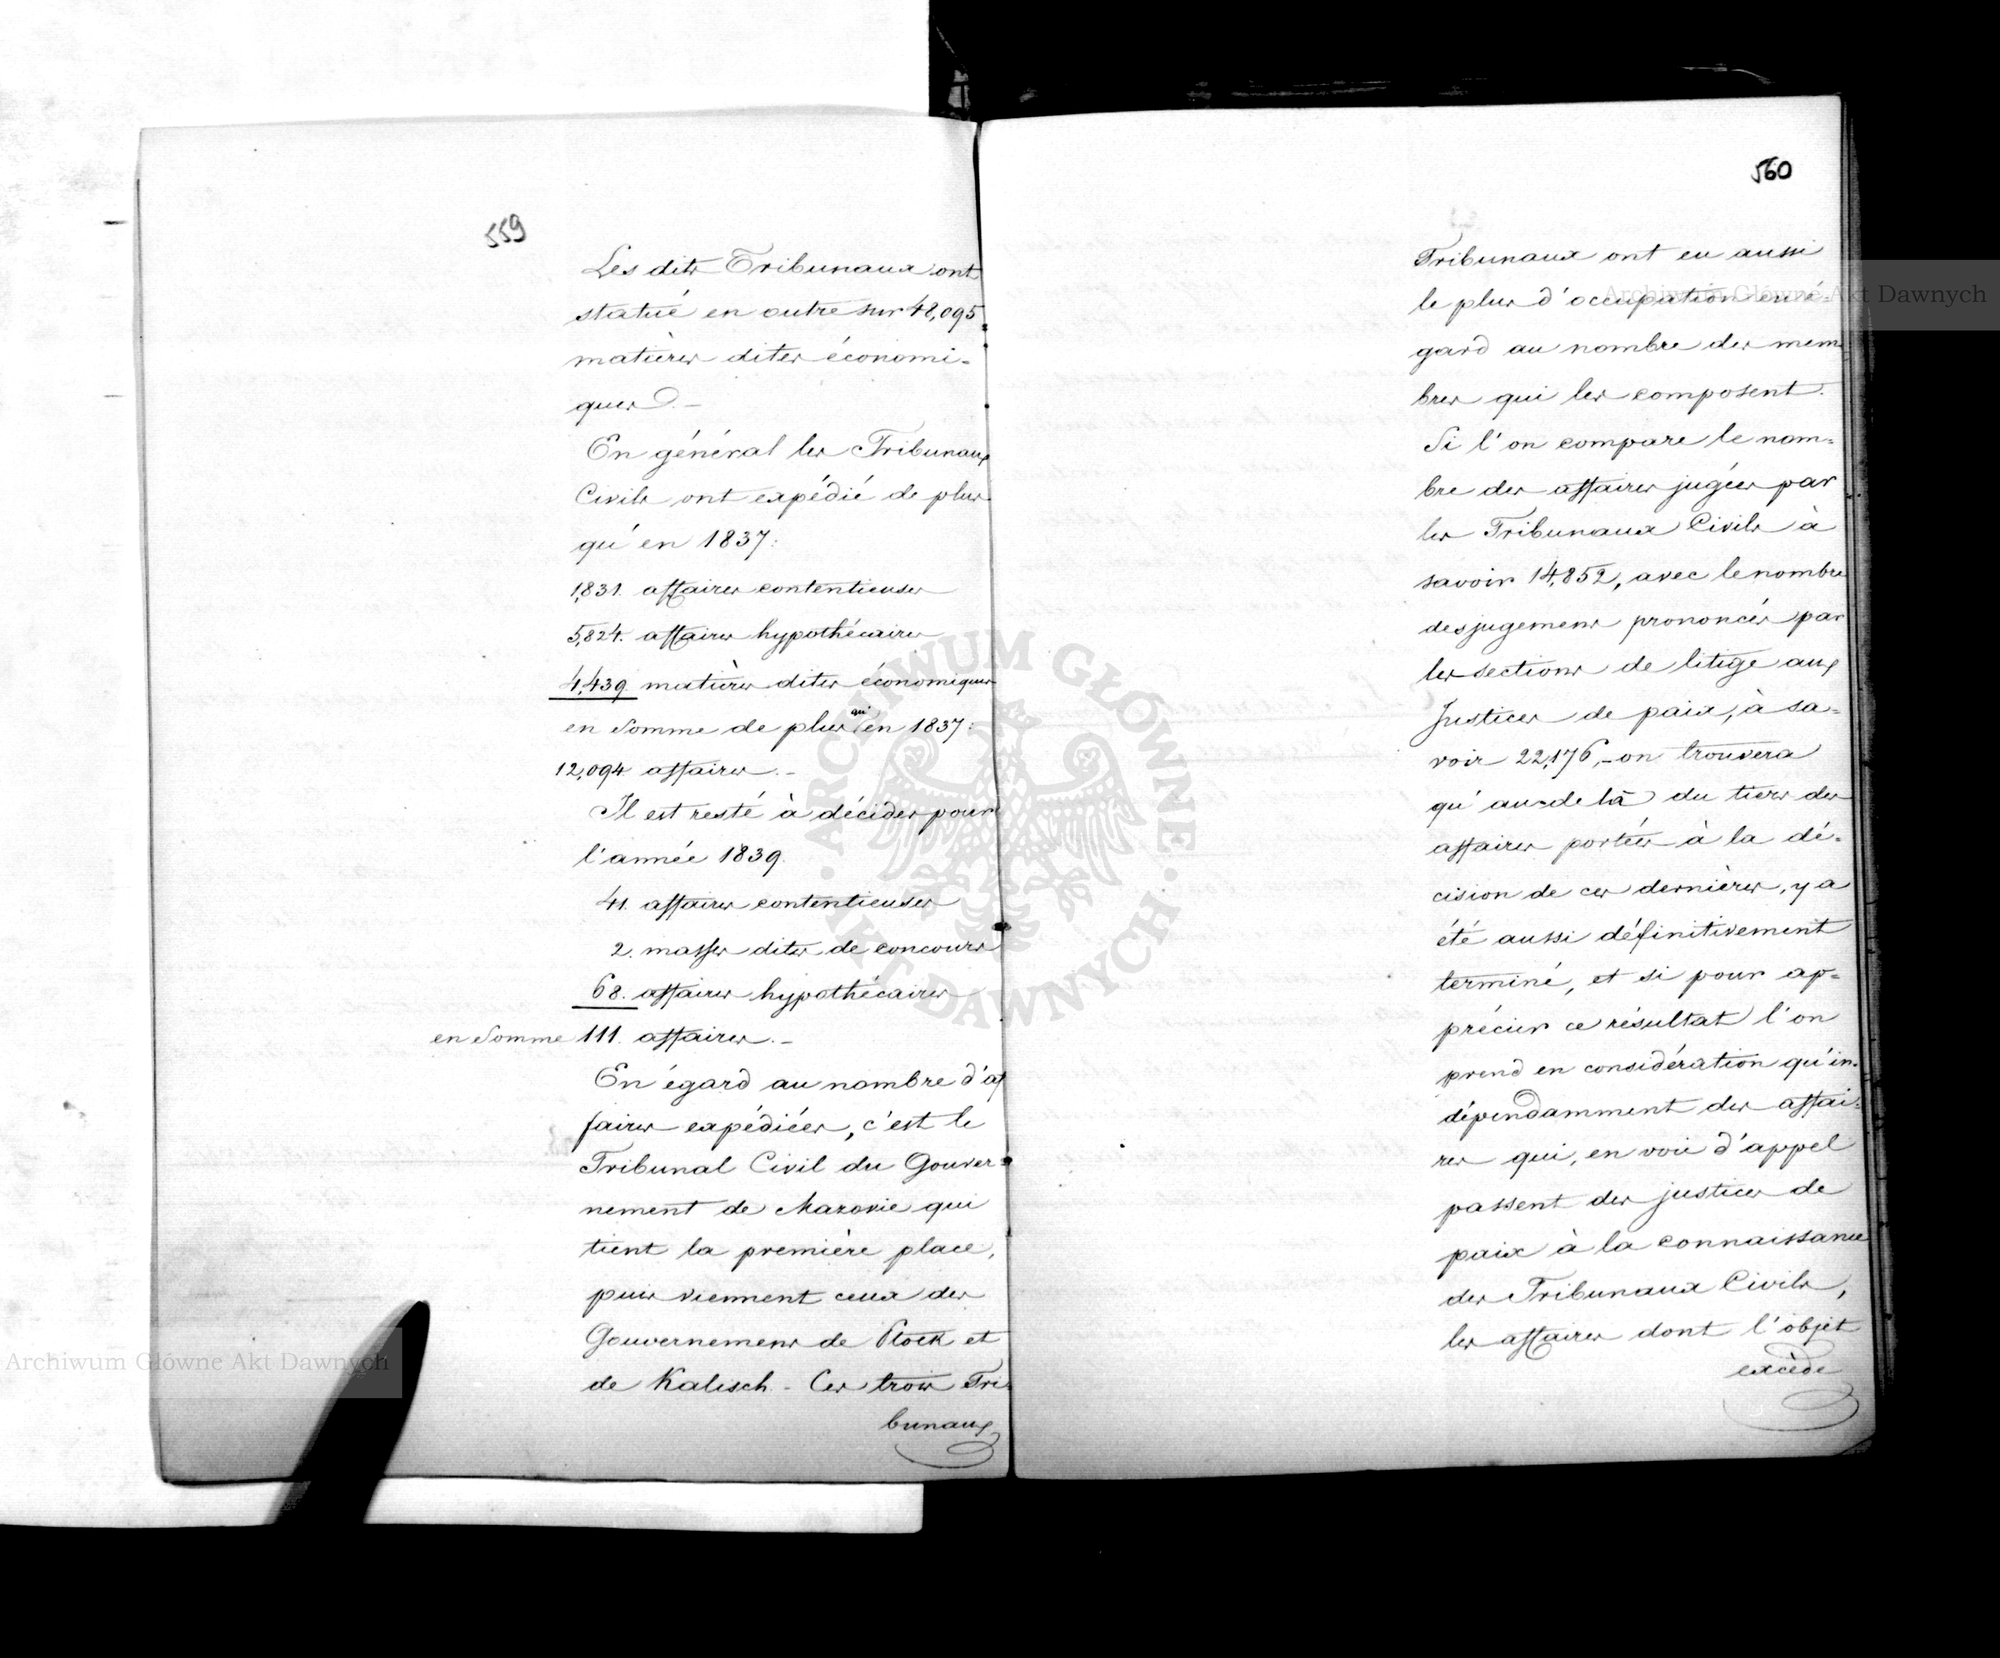 559
Les dits Tribunaux ont
statué en outre sur 48,095
matières dites économi-
ques.-
En général les Tribunaux
Civils ont expédié de plus
qu'en 1837:
1,831. affaires contentieuses
5,824. affaires hypothécaires
4,439. matières dites économiques
en somme de plus qu'en 1837:
12,094 affaires.-
Il est resté à décider pour
l'année 1839.
41. affaires contentieuses
2. masses dites de concours
68. affaires hypothécaires
en somme 111. affaires.-
En égard au nombre d'af
faires expédiées, c'est le
Tribunal Civil du Gouver-
nement de Mazovie qui
tient la première place,
puis viennent ceux des
Gouvernemens de Plock et
de Kalisch.- Ces trois Tri
bunaux
560
Tribunaux ont eu aussi
le plus d'occupation eu é-
gard au nombre des mem
bres qui les composent.
Si l'on compare le nom-
bre des affaires jugées par
les Tribunaux Civils à
savoir 14,852, avec le nombre
des jugemens prononcés par
les sections de litige aux
Justices de paix, à sa-
voir 22,176,- on trouvera
qu'au-delà du tiers des
affaires portées à la dé-
cision de ces dernières, y a
été aussi définitivement
terminé, et si pour ap-
précier ce résultat l'on
prend en considération qu'in-
dépendamment des affai-
res qui, en voie d'appel
passent des justices de
paix à la connaissance
des Tribunaux Civils,
les affaires dont l'objet
excède
Archiwum Główne Akt Dawnych
Archiwum Główne Akt Dawnych
ARCHIWUM GŁÓWNE AKT DAWNYCH